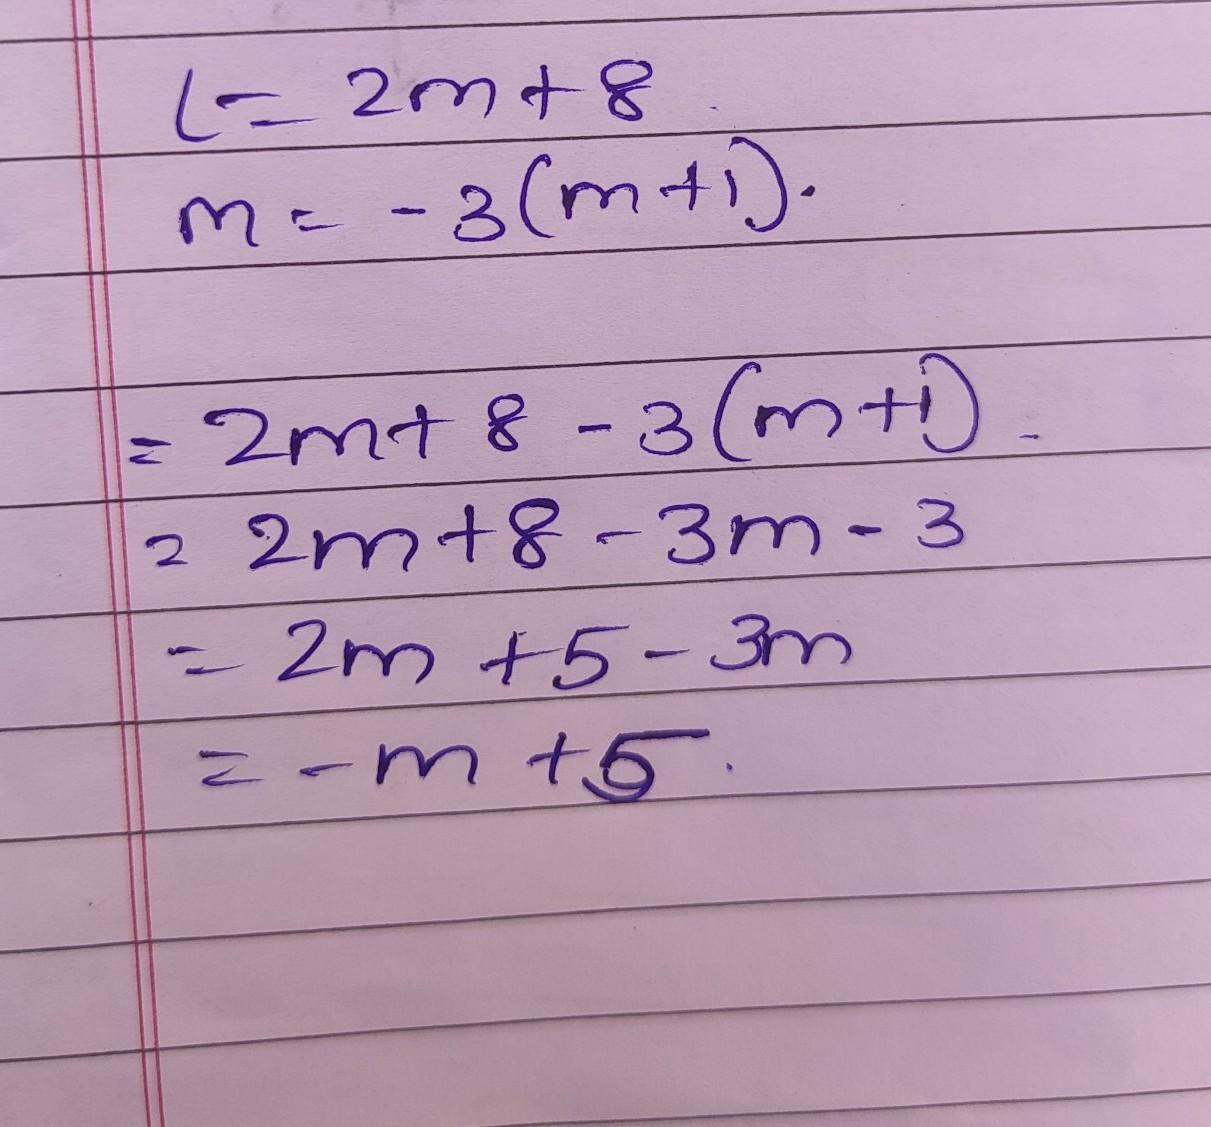 l = 2m + 8
m = -3(m+1).
= 2m + 8 - 3(m+1).
= 2m + 8 - 3m - 3
= 2m + 5 - 3m
= -m + 5.